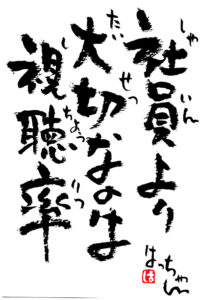 社員より
しゃいん
大切なのは
たいせつ
視聴率
しちょうりつ
はっちゃん